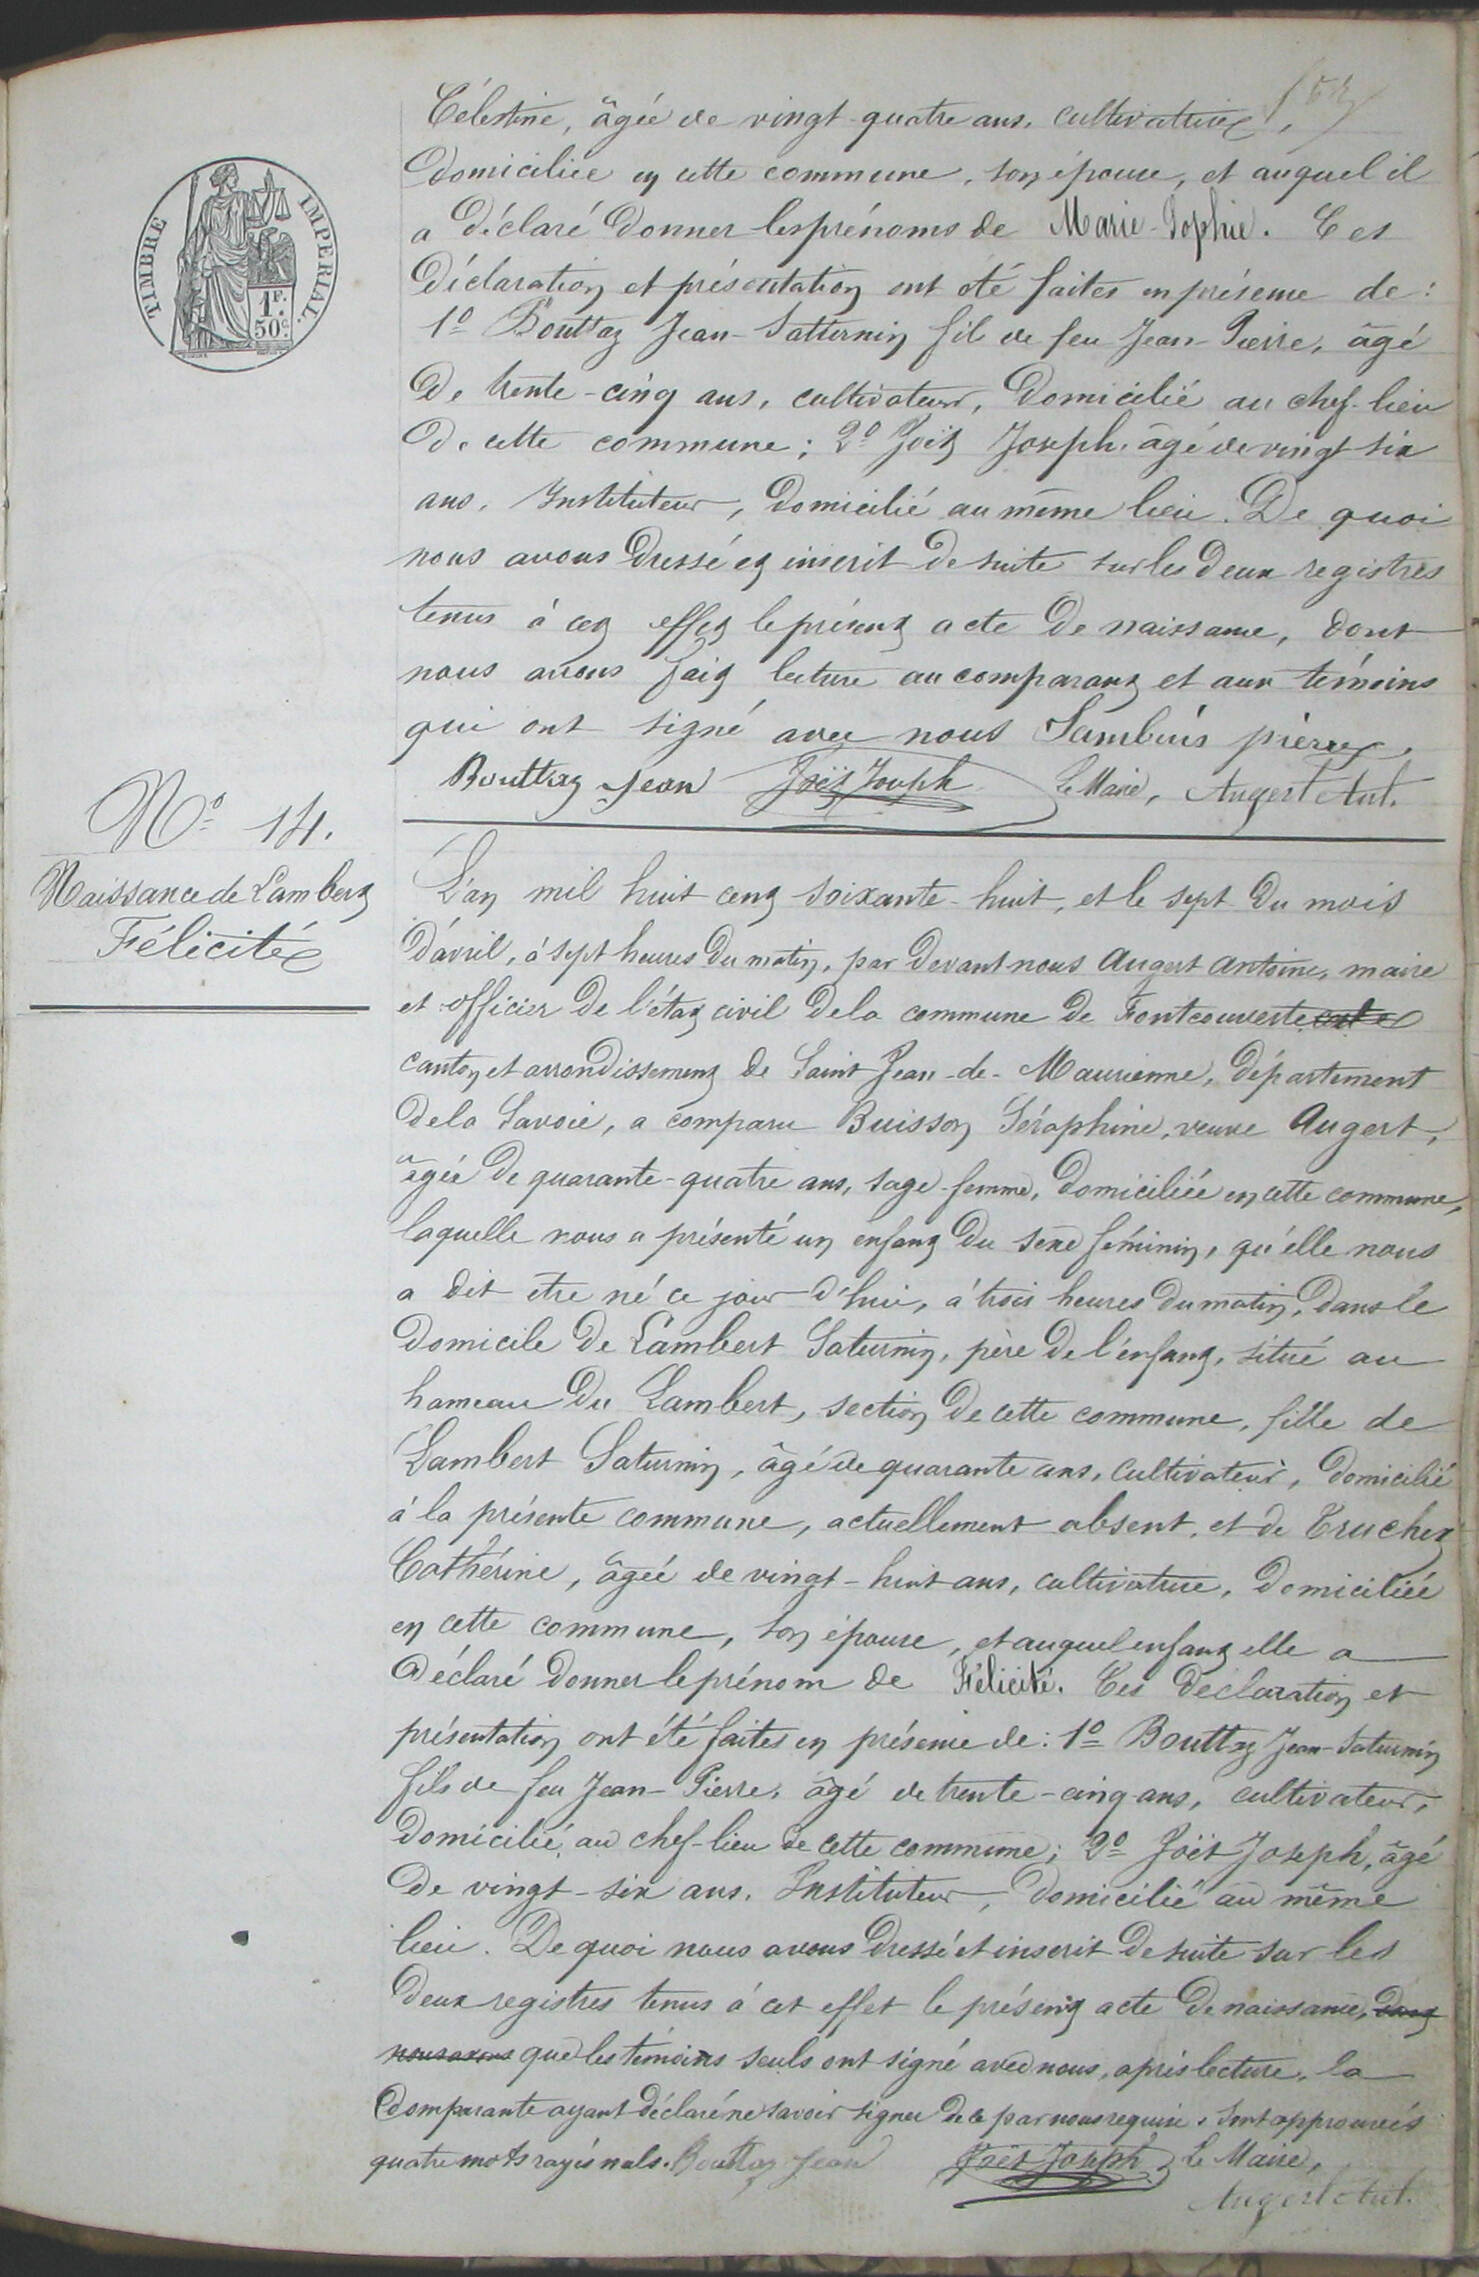 Célestine, âgée de vingt-quatre ans, cultivatrice,
domiciliée en cette commune, son épouse, et auquel il
a déclaré donner les prénoms de Marie-Sophie. Ces
déclaration et présentation ont été faites en présence de :
1º Bouttaz Jean-Satturnin fils de feu Jean-Pierre, âgé
de trente-cinq ans, cultivateur, domicilié au chef-lieu
de cette commune ; 2º Joët Joseph, âgé de vingt six
ans, Instituteur, domicilié au même lieu. De quoi
nous avons dressé et inscrit de suite sur les deux registres
tenus à cet effet le présent acte de naissance, dont
nous avons fait lecture au comparant et aux témoins
qui ont signé avec nous Sambuis pierre.
Bouttaz Jean Joët Joseph Le Maire, Augert Ant.
TIMBRE IMPERIAL.
1F.
50c
Nº 14.
Naissance de Lambert
Félicité
L'an mil huit cent soixante-huit, et le sept du mois
d'avril, à sept heures du matin, par devant nous Augert Antoine, maire
et officier de l'état civil de la commune de Fontcouverte
canton et arrondissement de Saint Jean-de-Maurienne, département
de la Savoie, a comparu Buisson Séraphine, veuve Augert,
âgée de quarante-quatre ans, sage-femme, domiciliée en cette commune,
laquelle nous a présenté un enfant du sexe féminin, qu'elle nous
a dit être né ce jour d'hui, à trois heures du matin, dans le
domicile de Lambert Saturnin, père de l'enfant, situé au
hameau du Lambert, section de cette commune, fille de
Lambert Saturnin, âgé de quarante ans, cultivateur, domicilié
à la présente commune, actuellement absent, et de Truchet
Cathérine, âgée de vingt-huit ans, cultivatrice, domiciliée
en cette commune, son épouse, et auquel enfant elle a
déclaré donner le prénom de Félicité. Ces déclaration et
présentation ont été faites en présence de : 1º Bouttaz Jean-Saturnin
fils de feu Jean-Pierre, âgé de trente-cinq ans, cultivateur,
domicilié au chef-lieu de cette commune ; 2º Joët Joseph, âgé
de vingt-six ans, Instituteur, domicilié au même
lieu. De quoi nous avons dressé et inscrit de suite sur les
deux registres tenus à cet effet le présent acte de naissance, dont
nous avons que les témoins seuls ont signé avec nous, après lecture, la
Comparante ayant déclaré ne savoir signer de ce par nous requise. Sont approuvés
quatre mots rayés nuls. Bouttaz Jean Joët Joseph Le Maire,
Augert Ant.